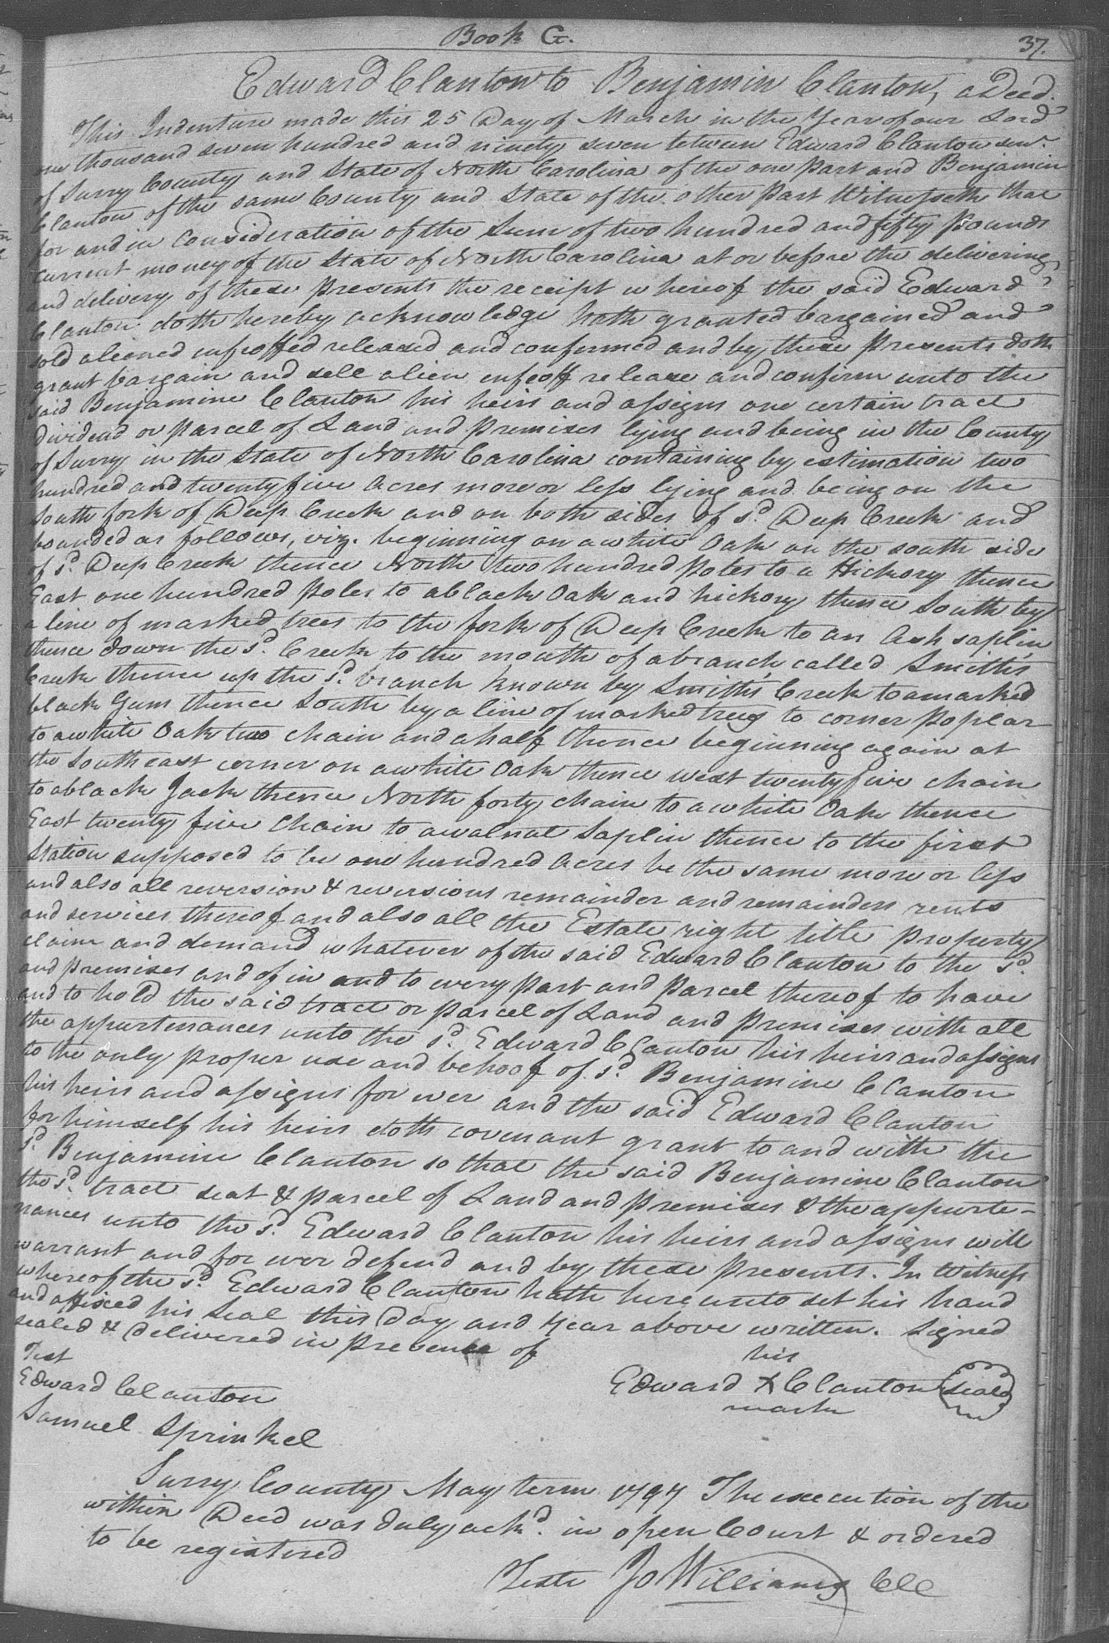 Book G. 37.
Edward Clanton to Benjamin Clanton, a Deed.
This Indenture made this 25 Day of March in the Year of our Lord
one thousand seven hundred and ninety seven between Edward Clanton senr.
of Surry County and State of North Carolina of the one Part and Benjamin
Clanton of the same County and State of the other Part Witnesseth that
for and in consideration of the Sum of two hundred and fifty Pounds
current money of the State of North Carolina at or before the delivering
and delivery of these Presents the receipt whereof the said Edward
Clanton doth hereby acknowledge hath granted bargained and
sold aliened infeoffed released and confirmed and by these Presents doth
grant bargain and sell alien enfeoff release and confirm unto the
said Benjamine Clanton his heirs and assigns one certain tract
Dividend or parcel of Land and premises lying and being in the County
of Surry in the State of North Carolina containing by estimation two
hundred and twenty five acres more or less lying and being on the
South fork of Deep Creek and on both sides of sd. Deep Creek and
bounded as follows, viz. beginning on a white Oak on the south side
of sd. Deep Creek thence North two hundred poles to a Hickory thence
East one hundred poles to a black Oak and hickory thence South by
a line of marked trees to the fork of Deep Creek to an Ash saplin
thence down the sd. Creek to the mouth of a branch called Smith's
Creek thence up the sd. branch known by Smith's Creek to a marked
black Gum thence South by a line of marked trees to corner poplar
to a white Oak two chain and a half thence beginning again at
the Southeast corner on a white Oak thence west twenty five chain
to a black Jack thence North forty chain to a white Oak thence
East twenty five chain to a walnut Saplin thence to the first
Station supposed to be one hundred acres be the same more or less
and also all reversion & reversions remainder and remainders rents
and services thereof and also all the Estate right title property
claim and demand whatever of the said Edward Clanton to the sd.
and premises and of in and to every part and parcel thereof to have
and to hold the said tract or parcel of Land and premises with all
the appurtenances unto the sd. Edward Clanton his heirs and assigns
to the only proper use and behoof of sd. Benjamine Clanton
his heirs and assigns for ever and the said Edward Clanton
for himself his heirs doth covenant grant to and with the
sd. Benjamine Clanton so that the said Benjamine Clanton
the sd. tract seat & parcel of Land and premises & the appurte-
nances unto the sd. Edward Clanton his heirs and assigns will
warrant and for ever defend and by these presents. In Witness
whereof the sd. Edward Clanton hath hereunto set his hand
and affixed his Seal this Day and Year above written. Signed
sealed & delivered in presence of
Test his
Edward Clanton Edward X Clanton seal
mark
Samuel Sprinkel
Surry County May term 1797 The execution of the
within Deed was duly ackd. in open Court & ordered
to be registered
Teste Jo Williams CCC